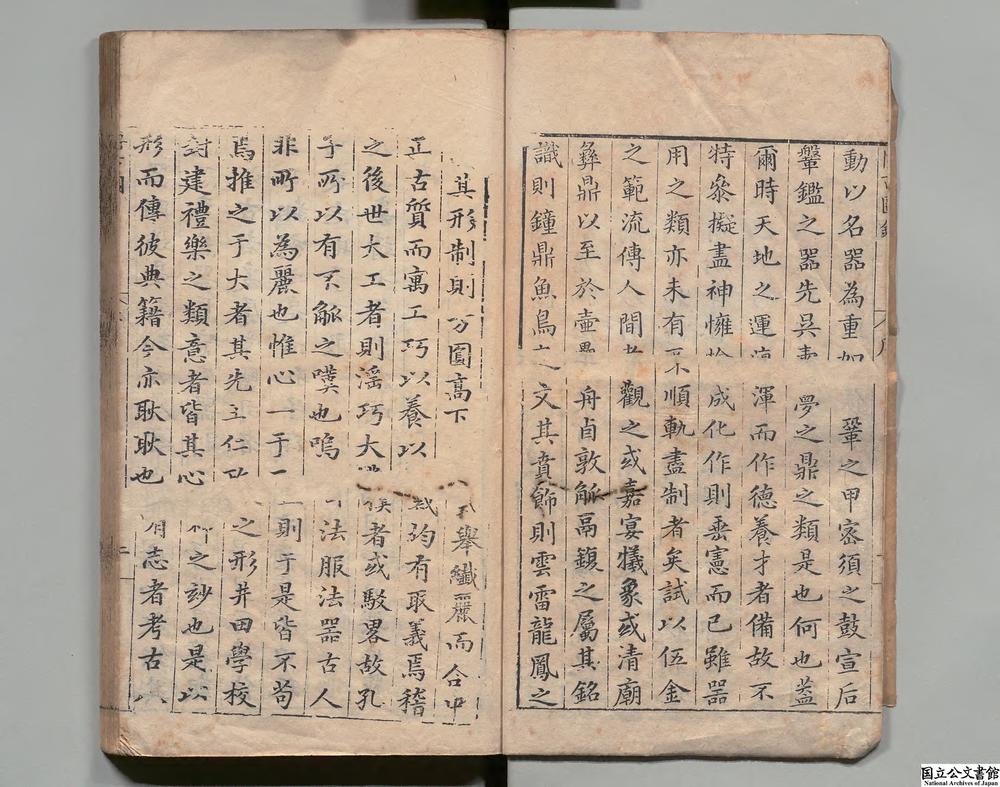 動以名器為重如 鞏之甲宻須之鼓宣后
鞶鑑之器先吴壽夢之鼎之類是也何也蓋
爾時天地之運 渾而作德養才者備故不
特叅擬盡神 成化作則垂憲而已雖器
用之類亦未有不順軌盡制者矣試以伍金
之範流傳人間者觀之或嘉宴犠象或清廟
彝鼎以至於壺罍舟卣敦觚鬲鍑之屬其銘
識則鐘鼎魚鳥之文其賁飾則雲雷龍鳳之
其形制則方圓高下 舉纖麗而合中
正古質而寓工巧以養以 均有取義焉稽
之後世大工者則滛巧大 者或駁畧故孔
子所以有不觚之嘆也嗚 法服法器古人
非所以為麗也惟心一于 則于是皆不苟
焉推之于大者其先王仁 之形井田學校
封建禮樂之類意者皆其心 之玅也是以
形而傳彼典籍今亦耿耿也 志者考古
二
国立公文書館
National Archives of Japan